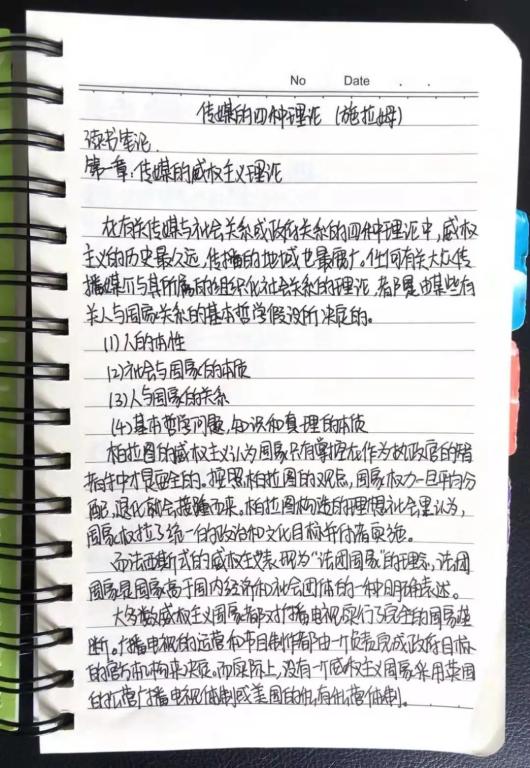 No Date
传媒的四种理论 (施拉姆)
读书笔记.
第一章:传媒的威权主义理论
在有关传媒与社会关系或政府关系的四种理论中,威权
主义的历史最久远,传播的地域也最广。任何有关大众传
播媒介与其所属的组织化社会关系的理论,都是由某些有
关人与国家关系的基本哲学假设所决定的。
(1)人的本性
(2)社会与国家的本质
(3)人与国家的关系
(4)基本哲学问题,知识和真理的本质
柏拉图的威权主义认为国家只有掌握在作为执政官的
手中才是安全的。按照柏拉图的观点,国家权力一旦平均分
配,退化就会接踵而来。柏拉图构造的理想社会里认为,
国家权拉了统一的政治和文化目标并付诸实施。
而法西斯式的威权主义表现为“法团国家”的理念,法团
国家是国家高于国内经济和社会团体的一种明确表述。
大多数威权主义国家都对广播电视实行了完全的国家垄
断。广播电视的运营和节目制作都由一个负责完成政府目标
的官方机构来决定。而实际上,没有一个威权主义国家采用英国
的公营广播电视体制或美国的私有私营体制。